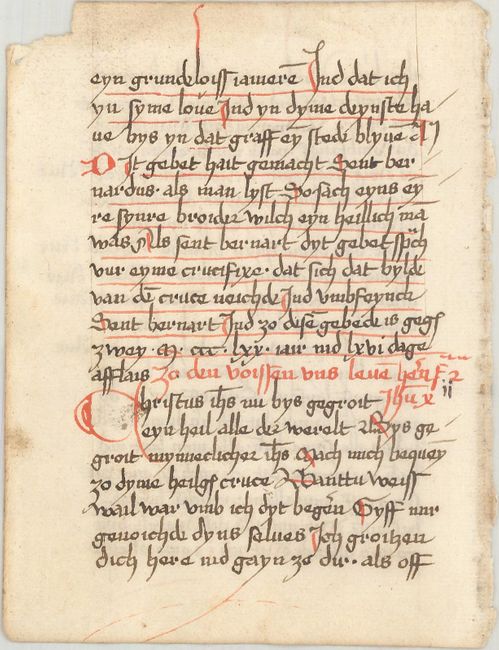 eyn grundeloiss iamere Jnd dat ich
yn syme love Jnd yn dyme deynste ha
ue bys yn dat graff ey stedi blyue
Dit gebet hait gemacht Sent ber
nardus · als man lyst · So sach eyns ey
re synre broider wilch eyn heillich mā
was Als sent bernart dyt gebet sprich
vur eyme crucifixe · dat sich dat bylde
van dē cruce neichde Jnd vmbfeynck
Sent bernart Jnd zo disē gebede is gegē
zwey · M · ccc · lxx · iair nid lxvi dage
afflais Zo den voissen vns leue herē
Christus ihs nu bys gegroit Jhu x ii
eyn heil alle der werelt Bys ge
groit mynneclicher ihs Mach mich bequey
zo dyme heilgē cruce Wanttu weiss
wail war vmb ich dyt begerē Gyff mir
genoichde dyns selues Jch groitzen
dich here nid gayn zo dir · als off